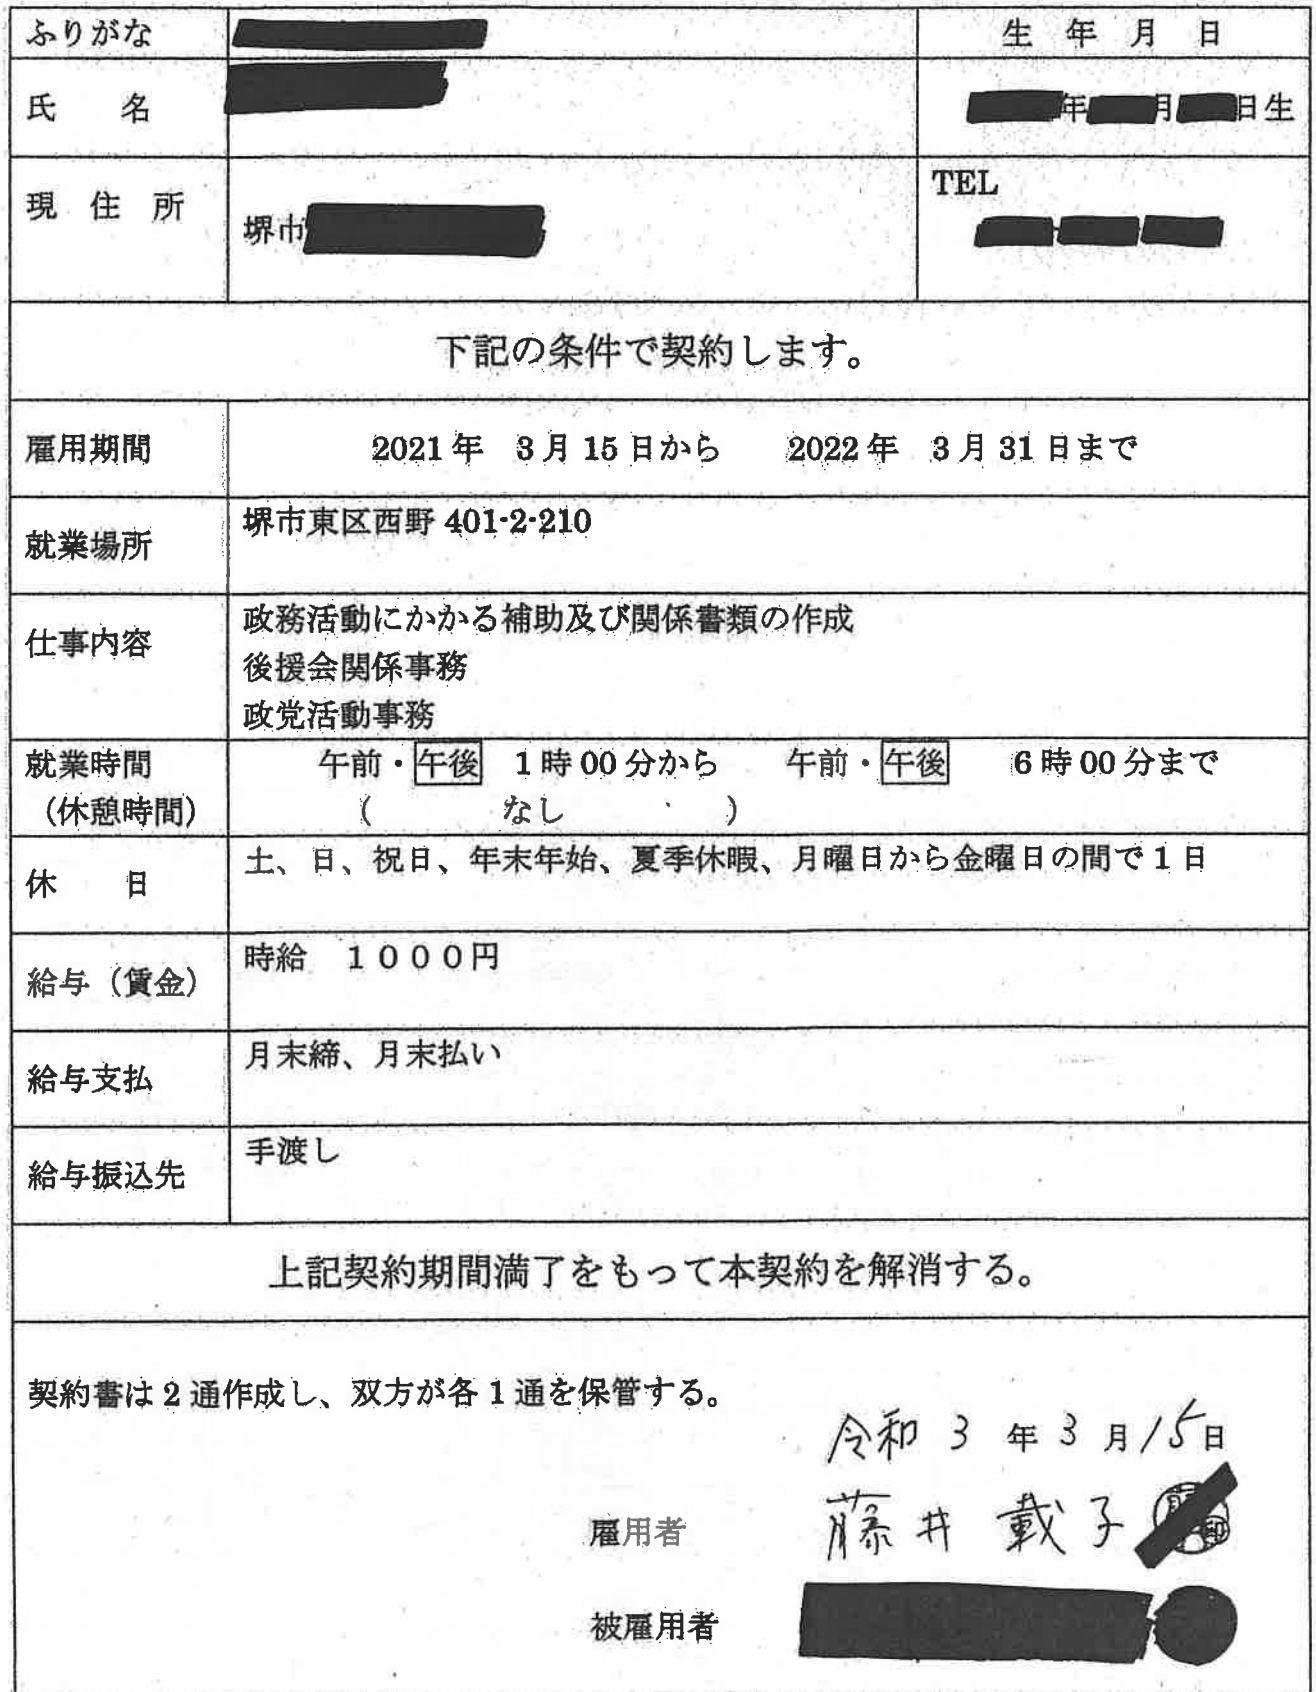 ふりがな
生 年 月 日
氏 名
年 月 日生
現 住 所
堺市
TEL
下記の条件で契約します。
雇用期間
2021年 3月15日から 2022年 3月31日まで
就業場所
堺市東区西野 401-2-210
仕事内容
政務活動にかかる補助及び関係書類の作成
後援会関係事務
政党活動事務
就業時間
(休憩時間)
午前・午後 1時00分から 午前・午後 6時00分まで
( なし )
休 日
土、日、祝日、年末年始、夏季休暇、月曜日から金曜日の間で1日
給与(賃金)
時給 1000円
給与支払
月末締、月末払い
給与振込先
手渡し
上記契約期間満了をもって本契約を解消する。
契約書は2通作成し、双方が各1通を保管する。
令和 3 年 3 月 15 日
雇用者
藤井 載子
被雇用者